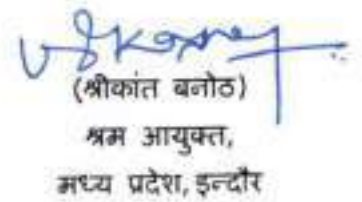 (श्रीकांत बनोठ)
श्रम आयुक्त,
मध्य प्रदेश, इन्दौर